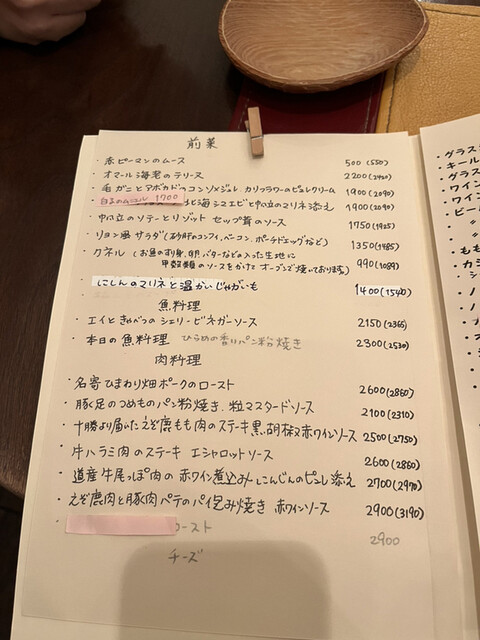 前菜
・赤ピーマンのムース 500(550)
・オマール海老のテリーヌ 2200(2420)
・毛ガニとアボカドのコンソメジュレ カリフラワーのピュレクリーム 1900(2090)
白子のムニエル 1700 北海シマエビと帆立のマリネ添え 1900(2090)
・帆立のソテーとリゾット セップ茸のソース 1750(1925)
・リヨン風サラダ(砂肝のコンフィ、ベーコン、ポーチドエッグなど) 1350(1485)
・クネル(お魚のすり身、卵、バターなどの入った生地に
甲殻類のソースをかけてオーブンで焼いております。) 990(1089)
・にしんのマリネと温かいじゃがいも 1400(1540)
魚料理
・エイときゃべつのシェリービネガーソース 2150(2365)
・本日の魚料理 ひらめの香りパン粉焼き 2300(2530)
肉料理
・名寄ひまわり畑ポークのロースト 2600(2860)
・豚足のつめものパン粉焼き、粒マスタードソース 2100(2310)
・十勝より届いたえぞ鹿もも肉のステーキ 黒胡椒赤ワインソース 2500(2750)
・牛ハラミ肉のステーキ エシャロットソース 2600(2860)
・道産牛尾っぽ肉の赤ワイン煮込み にんじんのピュレ添え 2700(2970)
・えぞ鹿肉と豚肉パテのパイ包み焼き 赤ワインソース 2900(3190)
ロースト 2900
チーズ
・グラス
・キール
・グラス
・ワイン
・ワイン
・ビール
・〃
・〃
・もも
・カシ